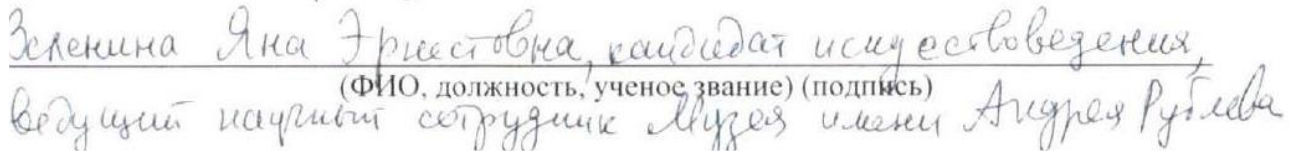 Зеленина Яна Эрнестовна, кандидат искусствоведения,
(ФИО, должность, ученое звание) (подпись)
ведущий научный сотрудник Музея имени Андрея Рублева